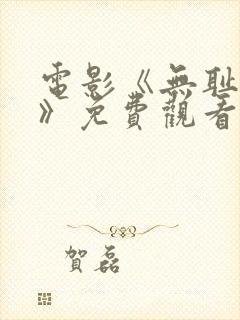 電影《無耻
》免費觀看
賀磊